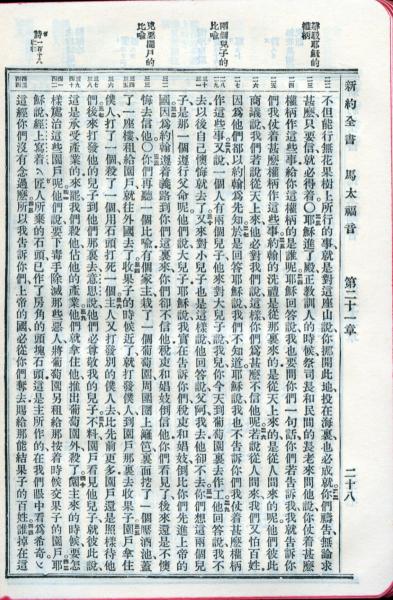 新約全書 馬太福音 第二十一章 二十八
權柄
兩個兒子的
比喻
園戶的
比喻
不但能行無花果樹上所行的事就是對這座山說你挪開此地投在海裏也必成就你們禱告無論求
甚麼只要信就必得着○耶穌進了殿正教訓人的時候祭司長和民間的長老來問他說你仗着甚麼
權柄作這些事給你這權柄的是誰呢耶穌回答說我也要問你們一句話你們若告訴我我就告訴你
我仗着甚麼權柄作這些事約翰的洗禮是從那裏來的是從天上來的是從人間來的呢他們彼此
商議說我們若說從天上來他必對我們說這樣你們爲甚麼不信他呢若說從人間來我們又怕百姓
因爲他們都以約翰爲先知於是回答耶穌說我們不知道耶穌說我也不告訴你們我仗着甚麼權柄
作這些事又說一個人有兩個兒子他來對大兒子說我兒你今天到葡萄園裏去作工他回答說我不
去以後自己懊悔就去了又來對小兒子也是這樣說他回答說父阿我去他卻不去你們想這兩個兒
子是那一個遵行父命呢他們說大兒子耶穌說我實在告訴你們稅吏和娼妓倒比你們先進上帝的
國因爲約翰遵着義路到你們這裏來你們卻不信他稅吏和娼妓倒信他你們看見了後來還是不懊
悔去信他○你們再聽一個比喻有個家主栽了一個葡萄園周圍圈上籬笆裏面挖了一個壓酒池蓋
了一座樓租給園戶就往外國去了收果子的時候近了就打發僕人到園戶那裏去收果子園戶拿住
僕人打了一個殺了一個用石頭打死一個主人又打發別的僕人去比先前更多園戶還是照樣待他
們後來打發他的兒子到他們那裏去意思說他們必尊敬我的兒子不料園戶看見他兒子就彼此說
這是承受產業的來罷我們殺他佔他的產業他們就拿住他推出葡萄園外殺了園主來的時候要怎
樣處治這些園戶呢他們說要下毒手除滅那些惡人將葡萄園另租給那按着時候交果子的園戶耶
穌說經上寫着匠人所棄的石頭已作了房角的頭塊石頭這是主所作的在我們眼中看爲希奇
這經你們沒有念過麼所以我告訴你們上帝的國必從你們奪去賜給那能結果子的百姓誰掉在這